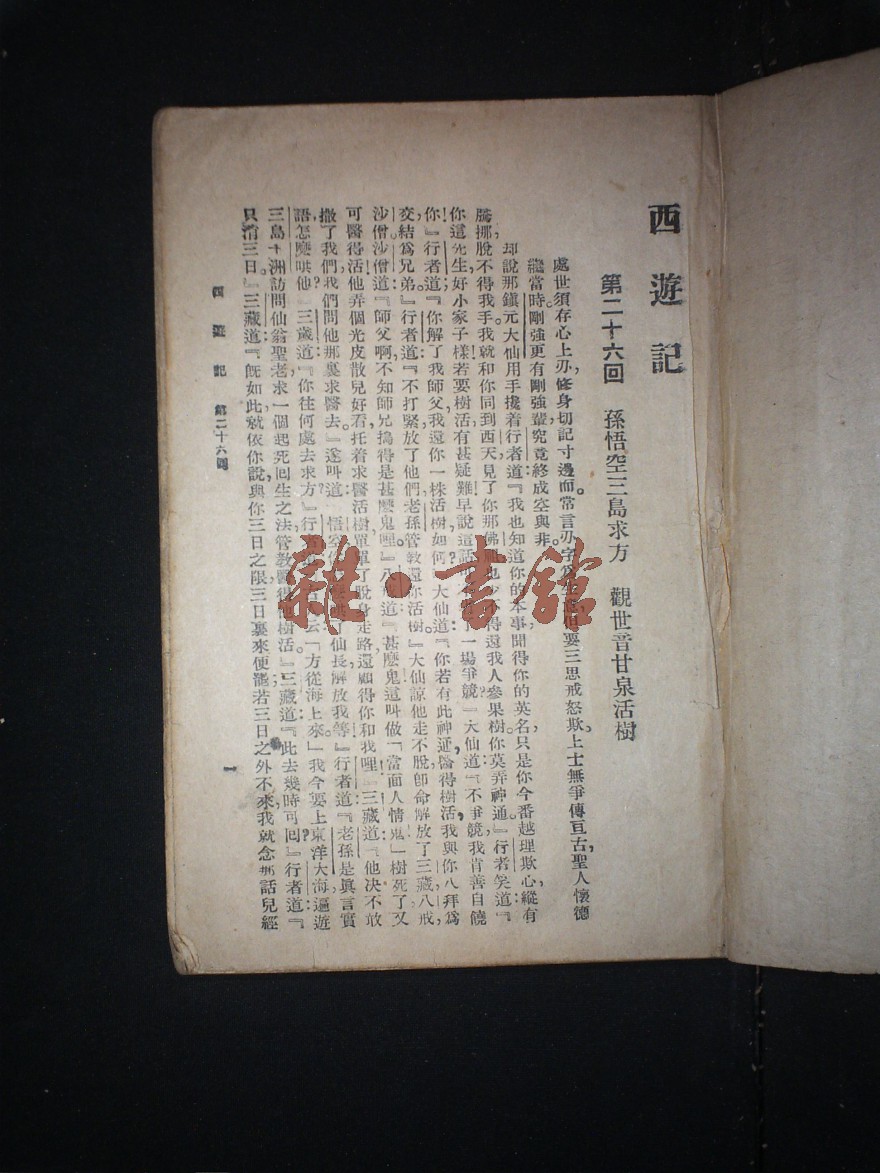 西遊記
第二十六回 孫悟空三島求方 觀世音甘泉活樹
處世須存心上刃,修身切記寸邊而。常言刃字為生意,但要三思戒怒欺。上士無爭傳亘古,聖人懷德
繼當時。剛強更有剛強輩,究竟終成空與非。
却說那鎮元大仙用手攙着行者道:『我也知道你的本事,聞得你的英名,只是你今番越理欺心,縱有
騰挪,脫不得我手。我就和你同到西天,見了你那佛祖,也少不得還我人參果樹。你莫弄神通。』行者笑道:『
你這先生好小家子樣!若要樹活,有甚疑難!早說這話,可不省了一場爭競?』大仙道:『不爭競,我肯善自饒
你!』行者道:『你解了我師父,我還你一株活樹如何?』大仙道:『你若有此神通,醫得樹活,我與你八拜為
交,結為兄弟。』行者道:『不打緊。放了他們,老孫管教還你活樹。』大仙諒他走不脫,即命解放了三藏、八戒、
沙僧。沙僧道:『師父啊,不知師兄搗得是甚麼鬼哩。』八戒道:『甚麼鬼!這叫做「當面人情鬼」!樹死了,又
可醫得活!他弄個光皮散兒好看,托着求醫活樹,單單了脫身走路,還顧得你和我哩!』三藏道:『他決不敢
撒了我們。我們問他那裏求醫去。』遂叫道:『悟空,你怎麼哄了仙長,解放我等?』行者道:『老孫是真言實
語,怎麼哄他?』三藏道:『你往何處去求方?』行者道:『古人云:「方從海上來。」我今要上東洋大海,遍遊
三島十洲,訪問仙翁聖老,求一個起死回生之法,管教醫得他樹活。』三藏道:『此去幾時可回?』行者道:『
只消三日。』三藏道:『既如此,就依你說,與你三日之限。三日裏來便罷;若三日之外不來,我就念那話兒經
西遊記 第二十六回
一
雜·書館